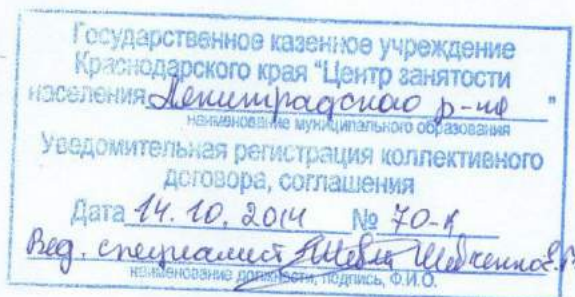 Государственное казенное учреждение
Краснодарского края "Центр занятости
населения Ленинградского р-на "
наименование муниципального образования
Уведомительная регистрация коллективного
договора, соглашения
Дата 14.10.2014 № 70-к
Вед. специалист Шевченко Е.В
наименование должности, подпись, Ф.И.О.